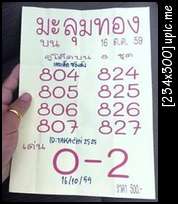 มะลุมทอง
บน 16 ต.ค. 59
804 824
805 825
806 826
807 827
เด่น
0-2
16/10/59
ราคา 500.-
[234:300]upic.me